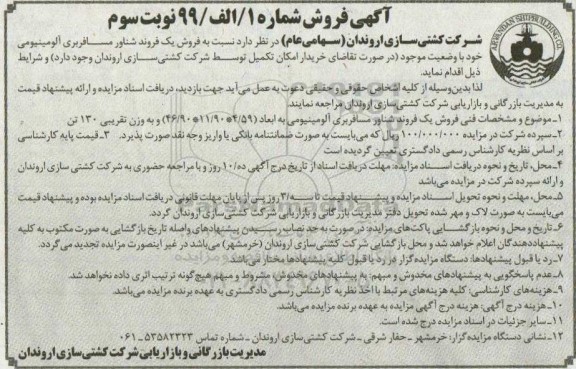 آگهی فروش شماره ۱/الف/۹۹ نوبت سوم
ARVANDAN SHIPBUILDING CO.
شرکت کشتی سازی اروندان (سهامی عام) در نظر دارد نسبت به فروش یک فروند شناور مسافربری آلومینیومی
خود با وضعیت موجود (در صورت تقاضای خریدار امکان تکمیل توسط شرکت کشتی سازی اروندان وجود دارد) و شرایط
ذیل اقدام نماید.
لذا بدین وسیله از کلیه اشخاص حقوقی و حقیقی دعوت به عمل می آید جهت بازدید، دریافت اسناد مزایده و ارائه پیشنهاد قیمت
به مدیریت بازرگانی و بازاریابی شرکت کشتی سازی اروندان مراجعه نمایند.
۱-موضوع و مشخصات فنی فروش یک فروند شناور مسافربری آلومینیومی به ابعاد (۴/۵۹*۱۱/۹۰*۴۶/۹۰) و به وزن تقریبی ۱۳۰ تن
۲-سپرده شرکت در مزایده ۱۰۰/۰۰۰/۰۰۰ ریال که می بایست به صورت ضمانتنامه بانکی یا واریز وجه نقد صورت پذیرد. ۳-قیمت پایه کارشناسی
بر اساس نظریه کارشناس رسمی دادگستری تعیین گردیده است
۴-محل، تاریخ و نحوه دریافت اسناد مزایده: مهلت دریافت اسناد از تاریخ درج آگهی ده/۱۰ روز و با مراجعه حضوری به شرکت کشتی سازی اروندان
و ارائه سپرده شرکت در مزایده می باشد
۵-محل، مهلت و نحوه تحویل اسناد مزایده و پیشنهاد قیمت تا سه/۳ روز پس از پایان مهلت قانونی دریافت اسناد مزایده بوده و پیشنهاد قیمت
می بایست به صورت لاک و مهر شده تحویل دفتر مدیریت بازرگانی و بازاریابی شرکت کشتی سازی اروندان گردد.
۶-تاریخ و محل و نحوه بازگشایی پاکت های مزایده: در صورت به حد نصاب رسیدن پیشنهادهای واصله تاریخ بازگشایی به صورت مکتوب به کلیه
پیشنهاددهندگان اعلام خواهد شد و محل بازگشایی شرکت کشتی سازی اروندان (خرمشهر) می باشد در غیر اینصورت مزایده تجدید می گردد.
۷-رد یا قبول پیشنهادها: دستگاه مزایده گزار در رد یا قبول کلیه پیشنهادها مختار می باشد.
۸-عدم پاسخگویی به پیشنهادهای مخدوش و مبهم: به پیشنهادهای مخدوش، مشروط و مبهم هیچ گونه ترتیب اثری داده نخواهد شد.
۹-هزینه های کارشناسی: کلیه هزینه های مرتبط با اخذ نظریه کارشناس رسمی دادگستری به عهده برنده مزایده می باشد.
۱۰-هزینه درج آگهی: هزینه درج آگهی مزایده به عهده برنده مزایده می باشد.
۱۱-سایر جزئیات در اسناد مزایده درج شده است.
۱۲-نشانی دستگاه مزایده گزار: خرمشهر - حفار شرقی - شرکت کشتی سازی اروندان - شماره تماس ۵۳۵۸۲۳۲۳-۰۶۱
مدیریت بازرگانی و بازاریابی شرکت کشتی سازی اروندان